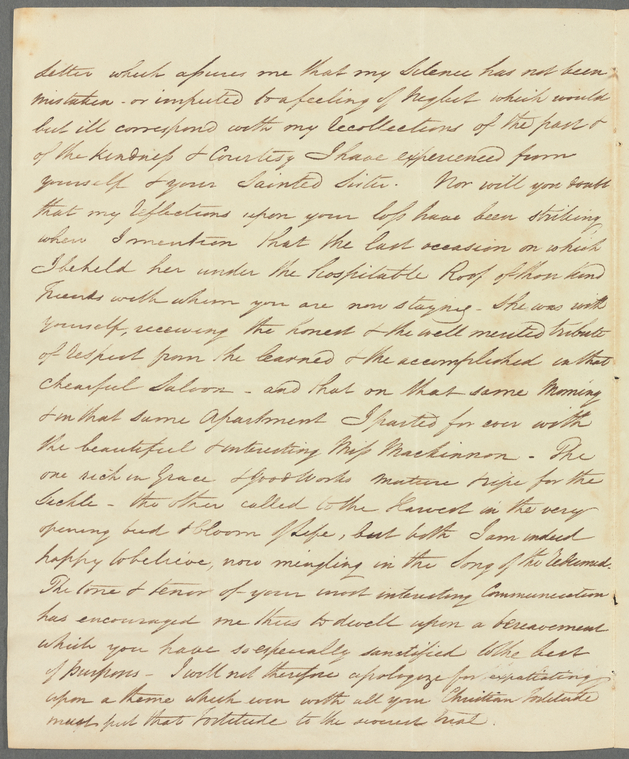 Letter which assures me that my Silence has not been
mistaken - or imputed to a feeling of Neglect which would
but ill correspond with my Recollections of the past &
of the kindness & Courtesy I have experienced from
yourself & your Sainted Sister. Nor will you doubt
that my Reflections upon your loss have been striking,
when I mention that the last occasion on which
I beheld her under the hospitable Roof of those kind
Friends with whom you are now staying - She was with
yourself, receiving the honest & the well merited tribute
of respect from the learned & the accomplished in that
chearful Saloon - and that on that same Morning
& in that same Apartment I parted for ever with
the beautiful & interesting Miss Mackinnon - The
one rich in Grace & good Works mature & ripe for the
Sickle - the other called to the Harvest in the very
opening bud & bloom of Life, but both I am indeed
happy to believe, now mingling in the Song of the Redeemed.
The tone & tenor of your most interesting Communication
has encouraged me thus to dwell upon a bereavement
which you have so especially sanctified to the best
of purposes - I will not therefore apologize for expatiating
upon a theme which even with all your Christian Fortitude
must put that Fortitude to the severest trial.